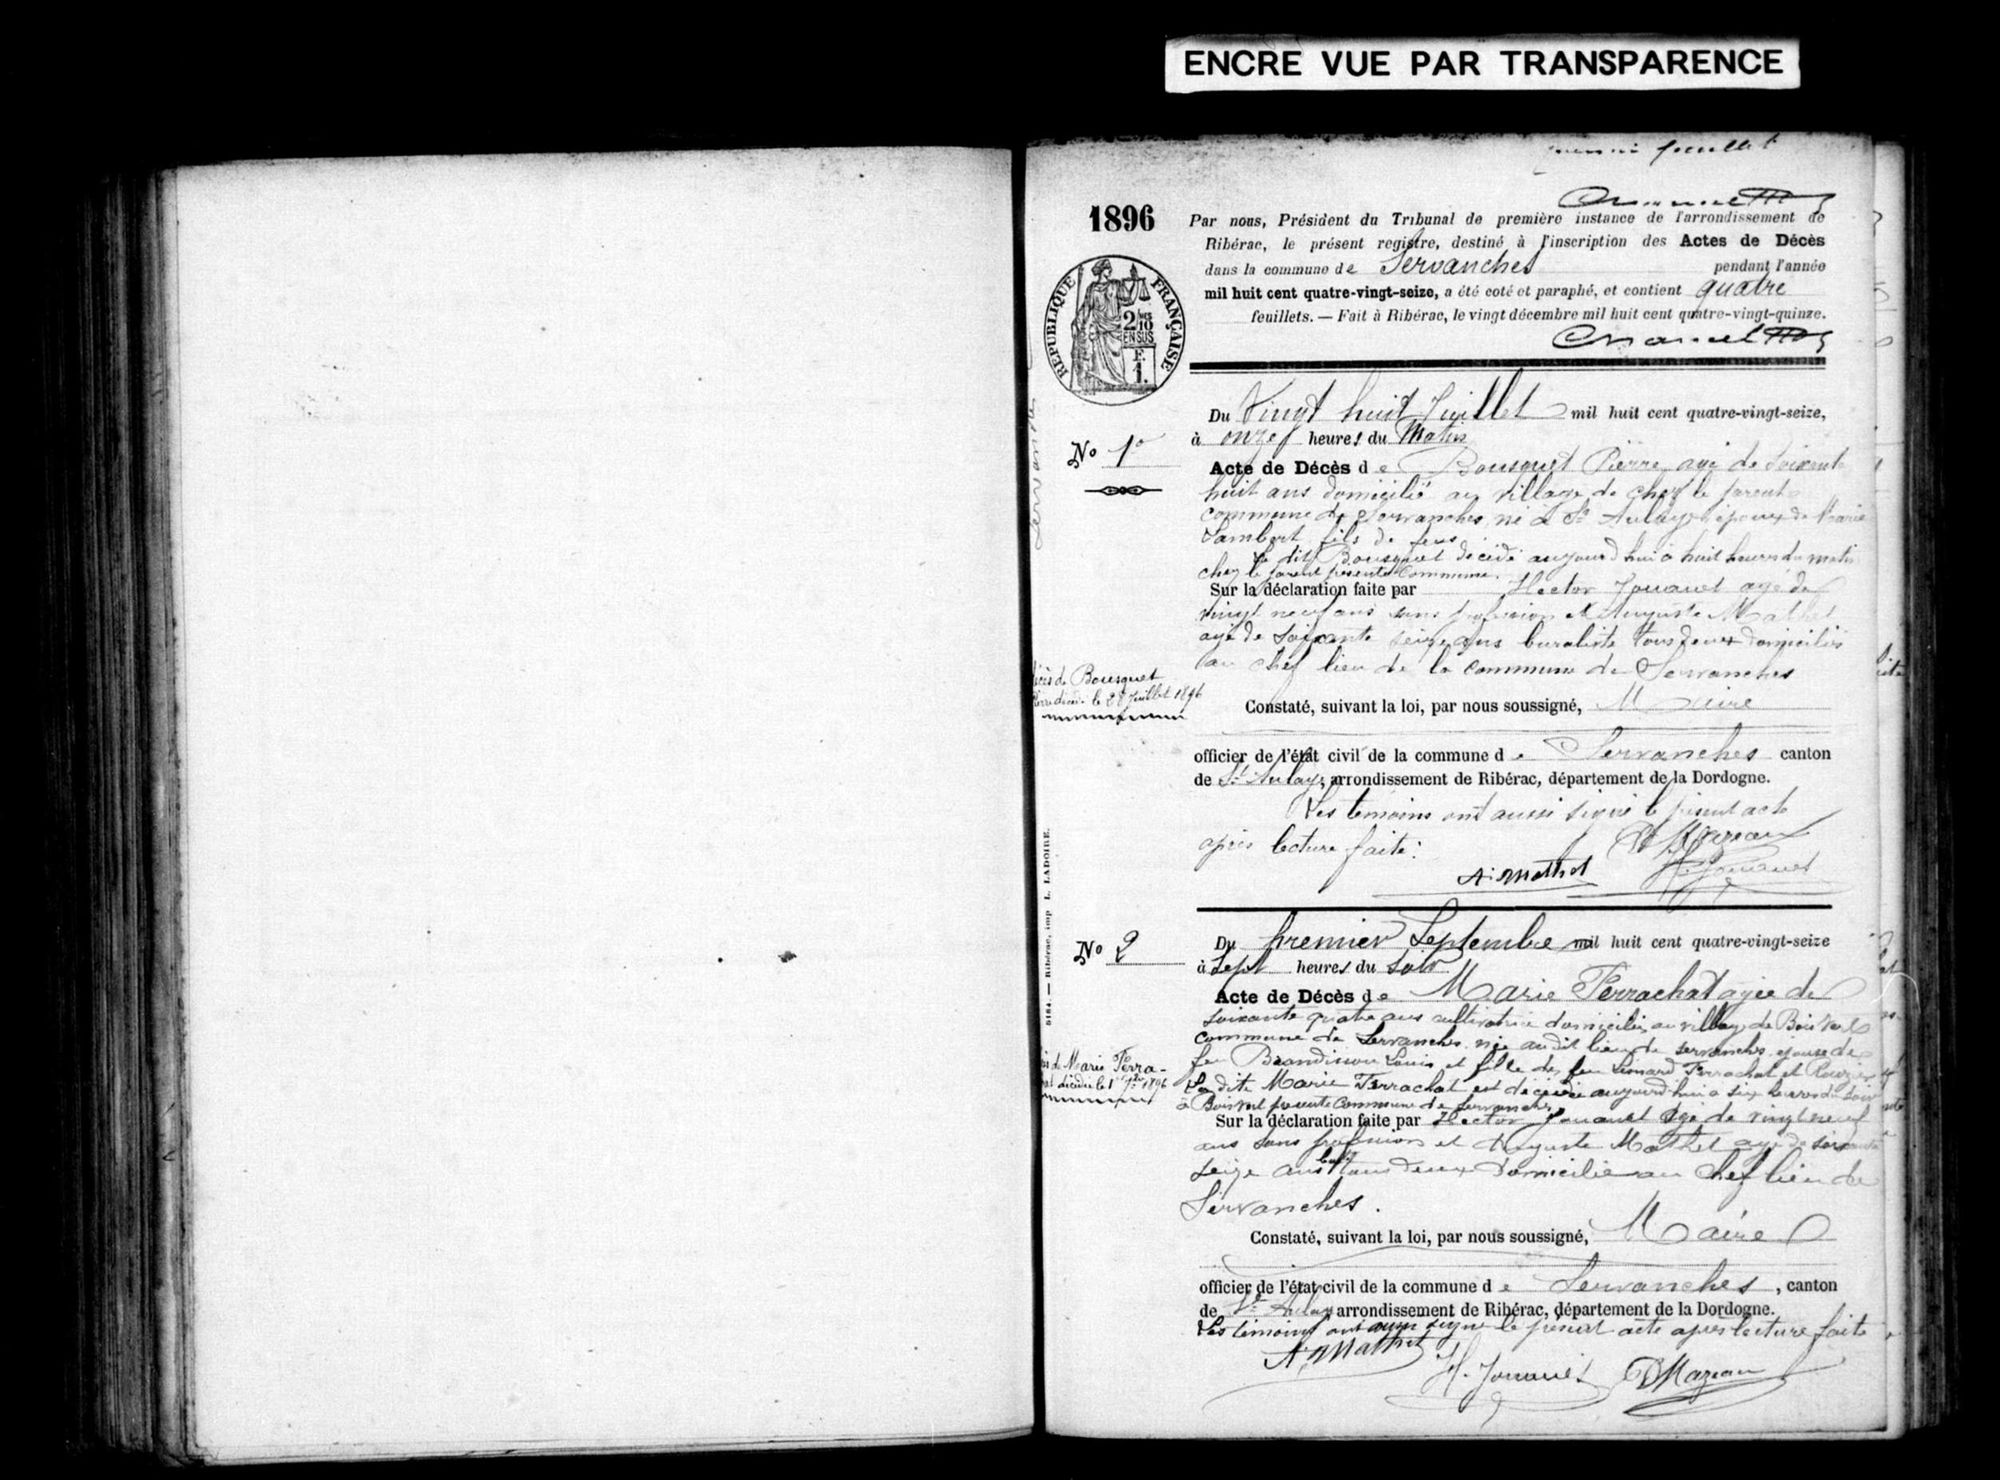 ENCRE VUE PAR TRANSPARENCE
1896
Par nous, Président du Tribunal de première instance de l'arrondissement de
Ribérac, le présent registre, destiné à l'inscription des Actes de Décès
dans la commune de Servanches pendant l'année
mil huit cent quatre-vingt-seize, a été coté et paraphé, et contient quatre
feuillets. — Fait à Ribérac, le vingt décembre mil huit cent quatre-vingt-quinze.
RÉPUBLIQUE FRANÇAISE
2/10
EN SUS
F.
1.
No 1o
Du Vingt huit Juillet mil huit cent quatre-vingt-seize,
à onzes heures du Matin
Acte de Décès de Bousquet Pierre, agé de soixante
huit ans domicilié au village de chez le parent
commune de Servanches, né à St Aulaye époux de Marie
Lambert, fils de feus
Le dit Bousquet décédé aujourd'hui à huit heures du matin
chez le parent presente Commune.
Sur la déclaration faite par Hector Jouanet agé de
vingt neuf ans sans profession et Auguste Mathet
agé de soixante seize ans buraliste tous deux domiciliés
au chef lieu de la commune de Servanches
Décès de Bousquet
Pierre décédé le 28 Juillet 1896
Constaté, suivant la loi, par nous soussigné, Maire
officier de l'état civil de la commune de Servanches canton
de St Aulaye, arrondissement de Ribérac, département de la Dordogne.
Les temoins ont aussi signé le présent acte
après lecture faite:
A. Mathet H. Jouanet
5184. — Ribérac, imp L. LADOIRE.
No 2
Du premier Septembre mil huit cent quatre-vingt-seize
à Sept heures du Soir
Acte de Décès de Marie Terrachat agée de
soixante quatre ans cultivatrice domiciliée au village de Boisvert
commune de Servanches née au dit lieu de Servanches épouse de
feu Louis et fille de feu Léonard Terrachat et
La dite Marie Terrachat est décédée aujourd'hui à six heures du soir
à Boisvert presente Commune de Servanches
de Marie Terra-
décédée le 1er 7bre 1896
Sur la déclaration faite par Hector Jouanet agé de vingt neuf
ans sans profession et Auguste Mathet agé de soixante
seize ans tous deux domicilié au Chef lieu de
Servanches.
Constaté, suivant la loi, par nous soussigné, Maire
officier de l'état civil de la commune de Servanches, canton
de St Aulaye arrondissement de Ribérac, département de la Dordogne.
Les témoins ont aussi signé le présent acte après lecture faite
A. Mathet
H. Jouanet Mazeau